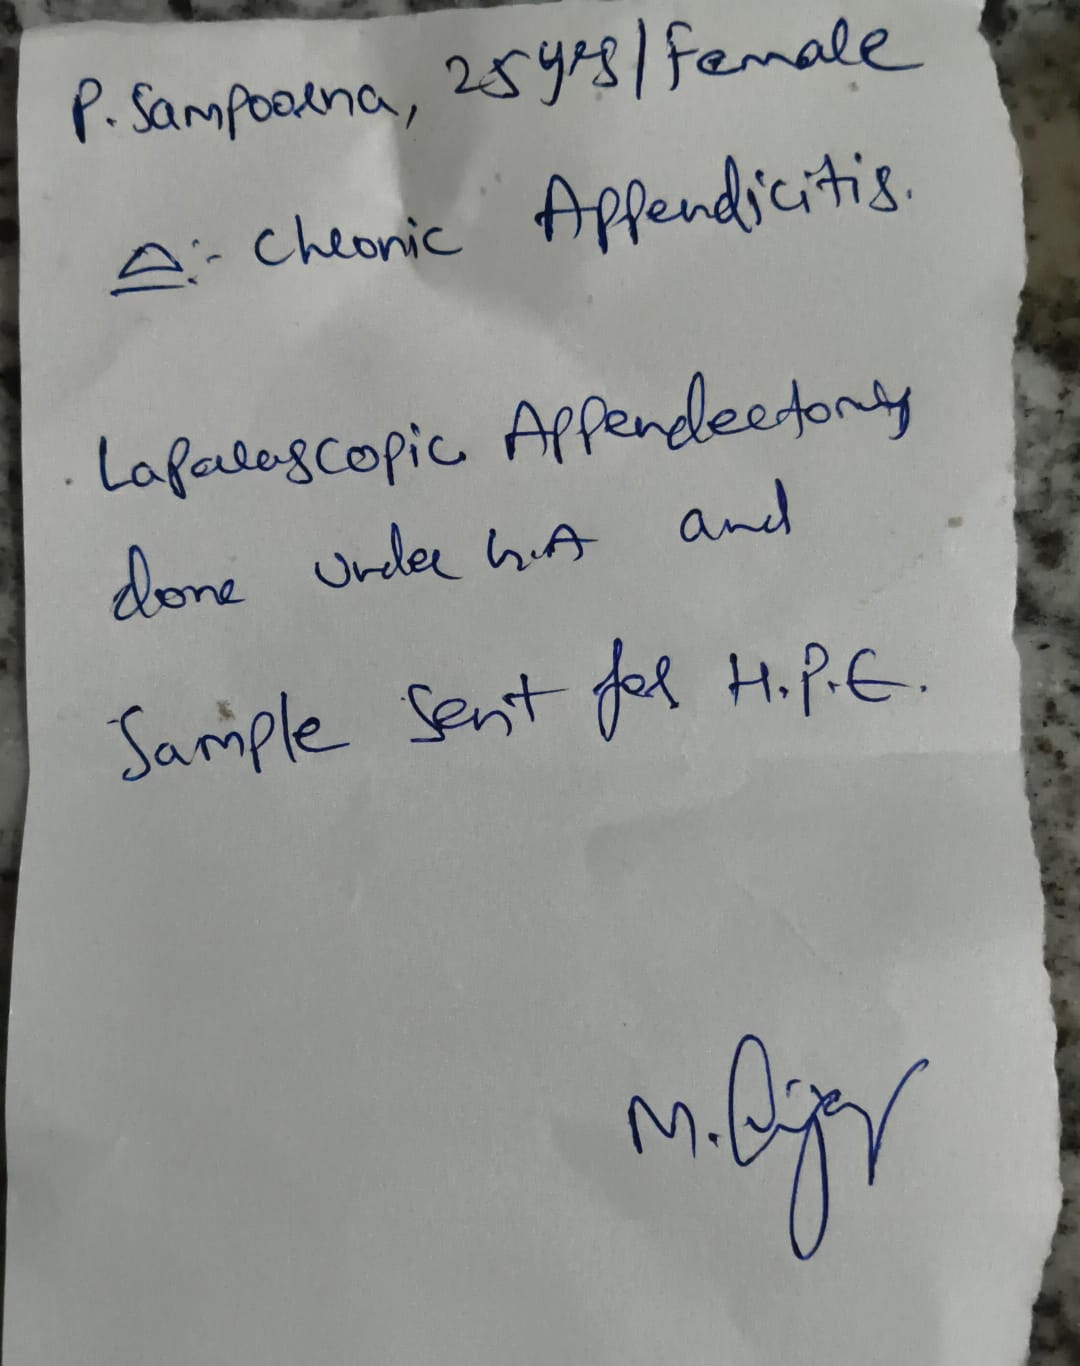 P. Sampoorna, 25 yrs / Female
Δ:- Chronic Appendicitis.
Laparoscopic Appendectomy
done under G.A and
Sample sent for H.P.E.
M.